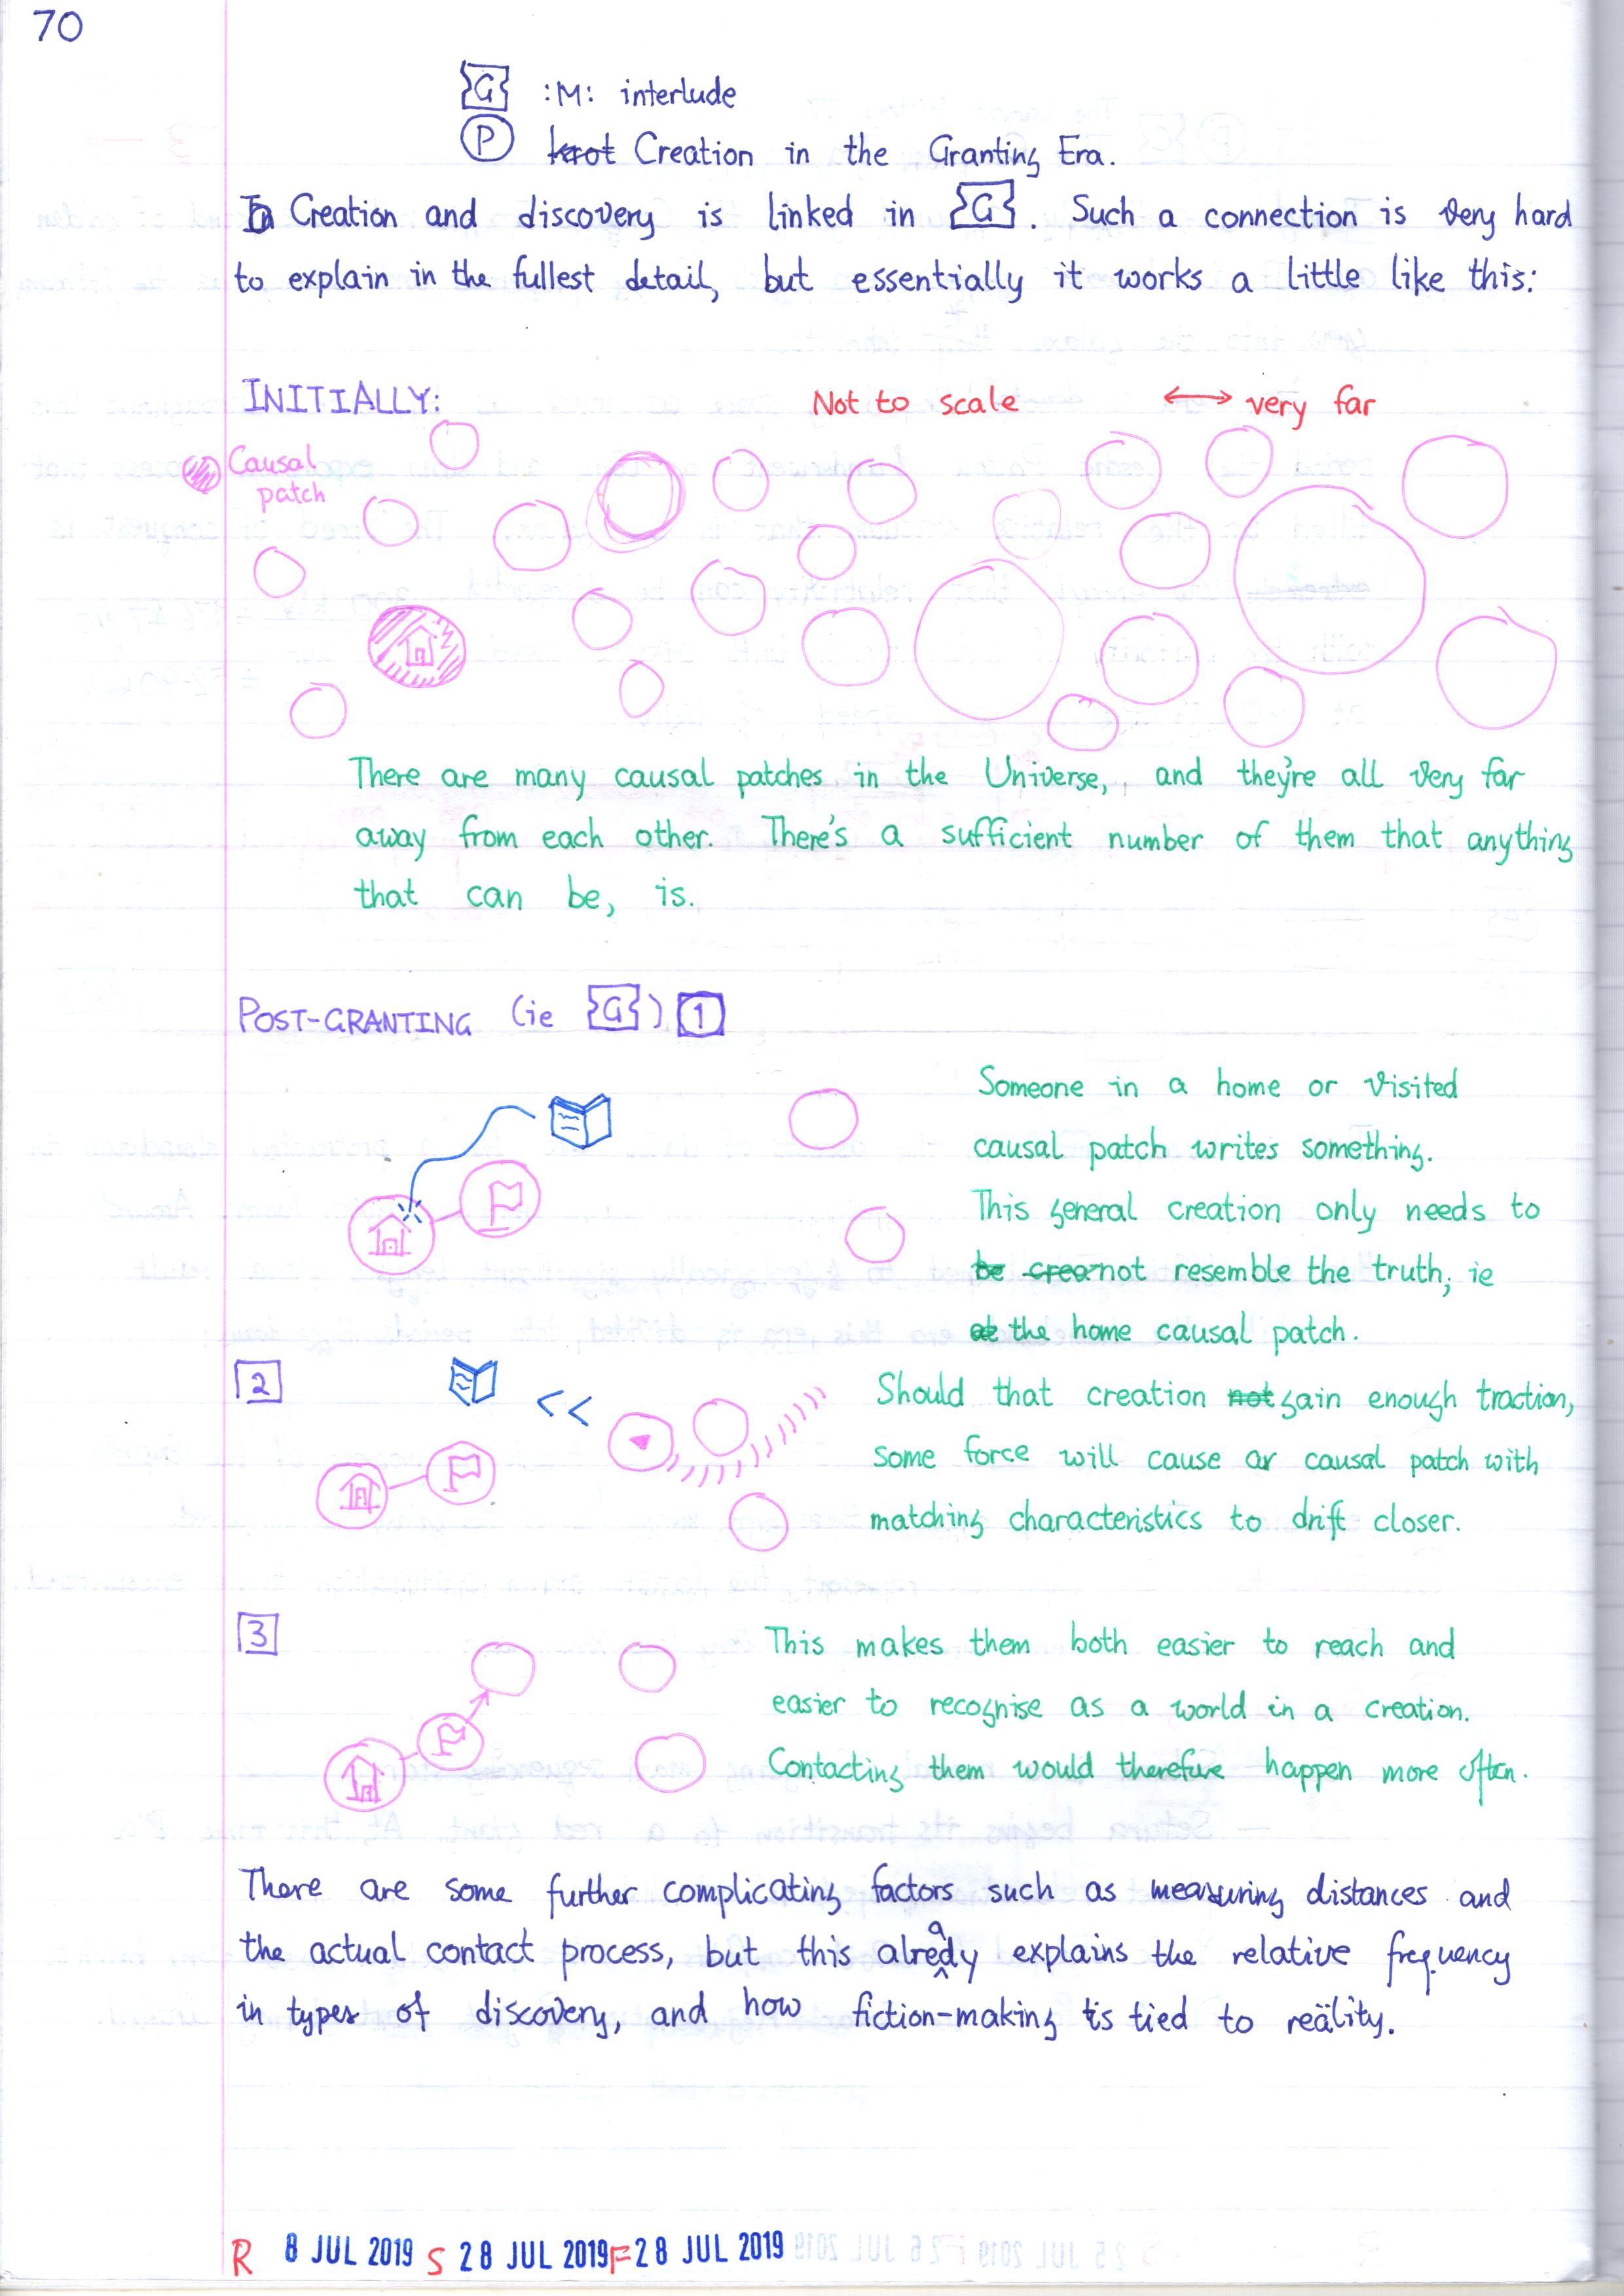 70
G :M: interlude
P Creation in the Granting Era.
Creation and discovery is linked in G. Such a connection is very hard
to explain in the fullest detail, but essentially it works a little like this:
INITIALLY:
Not to scale
↔ very far
Causal
patch
There are many causal patches in the Universe, and they're all very far
away from each other. There's a sufficient number of them that anything
that can be, is.
POST-GRANTING (ie G) 1
Someone in a home or visited
causal patch writes something.
This general creation only needs to
be crea not resemble the truth, ie
the home causal patch.
2
<<
Should that creation not gain enough traction,
some force will cause a causal patch with
matching characteristics to drift closer.
3
This makes them both easier to reach and
easier to recognise as a world in a creation.
Contacting them would therefore happen more often.
There are some further complicating factors such as measuring distances and
the actual contact process, but this already explains the relative frequency
in types of discovery, and how fiction-making is tied to reälity.
R 8 JUL 2019 S 28 JUL 2019 F 28 JUL 2019